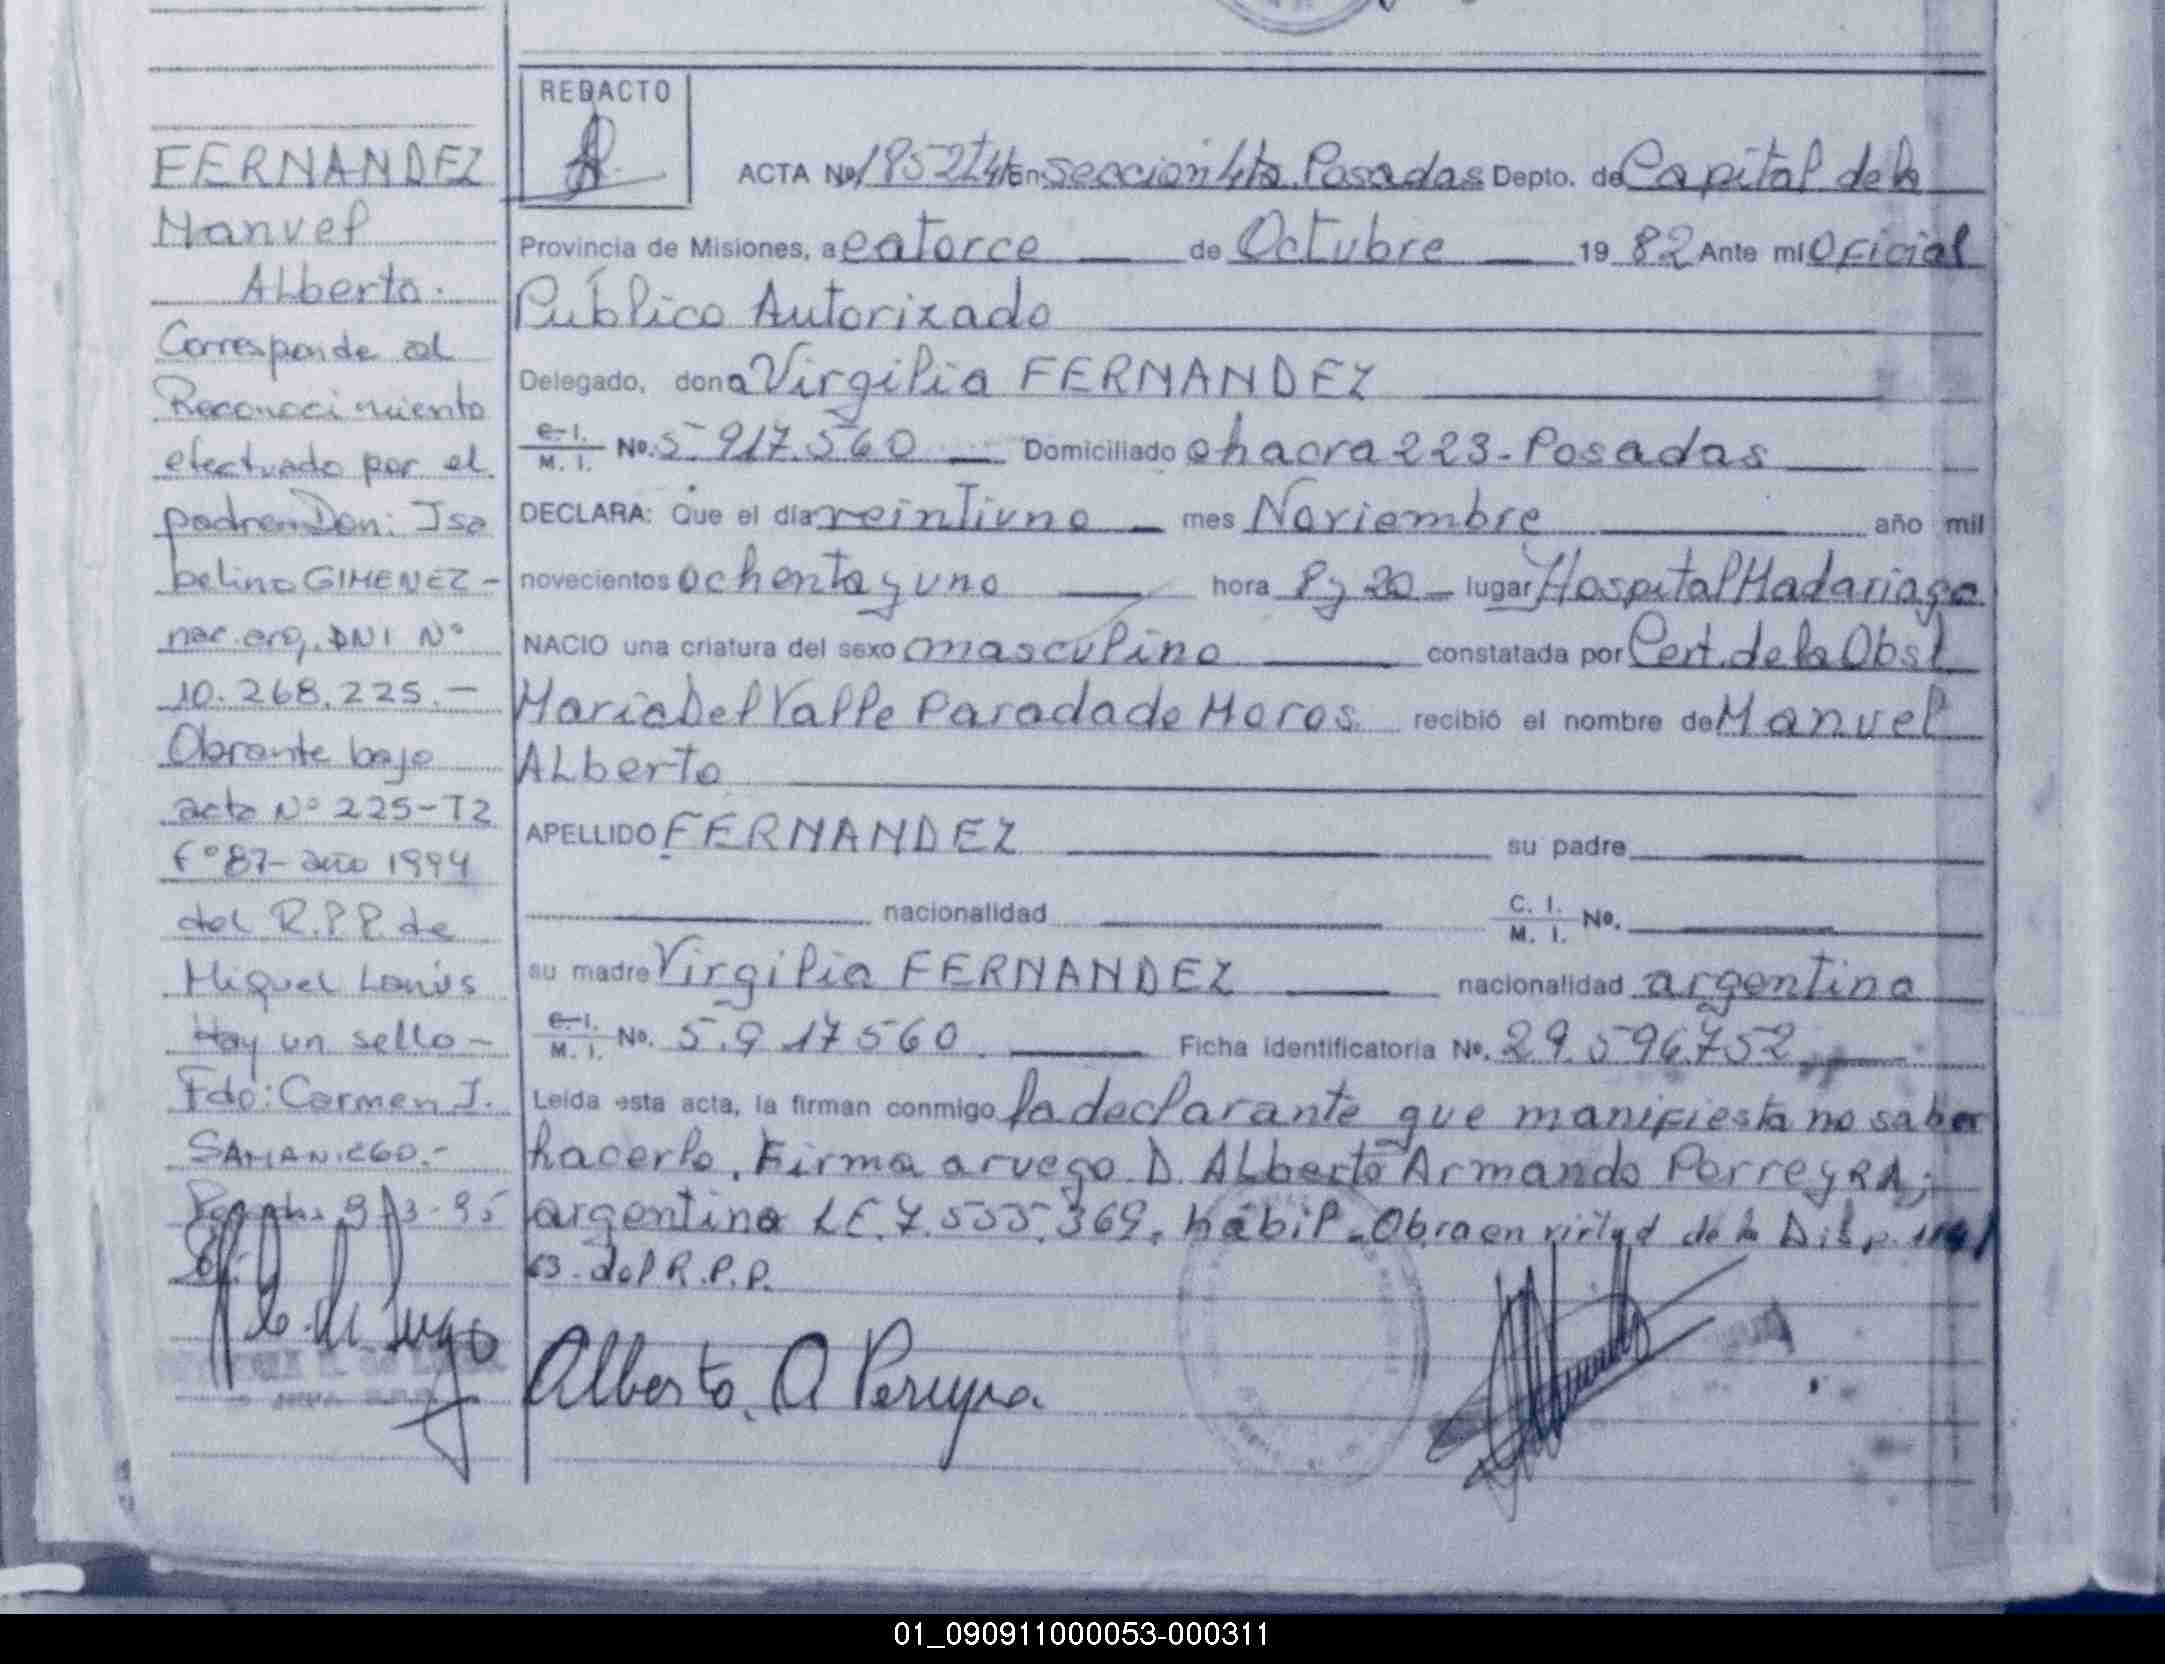 FERNANDEZ
Manuel
Alberto.
Corresponde al
Reconocimiento
efectuado por el
padre Don: Isa
belino GIMENEZ -
nac. arg. DNI N°
10.268.225.-
Obrante bajo
acta N° 225-T2
f° 87- año 1994
del R.P.P. de
Miguel Lanús
Hay un sello -
Fdo: Carmen J.
SAMANIEGO.-
REDACTO
ACTA No 1852T4 En seccion 4ta. Posadas Depto. de Capital de la
Provincia de Misiones, a catorce de Octubre 19 82 Ante mi Oficial
Público Autorizado
Delegado, dona Virgilia FERNANDEZ
C. I. M. I. No. 5.917.560 Domiciliado chacra 223 - Posadas
DECLARA: Que el día veintiuno mes Noviembre año mil
novecientos ochenta y uno hora 8 y 20 lugar Hospital Madariaga
NACIO una criatura del sexo masculino constatada por Cert. de la Obst
Maria Del Valle Parada de Moros recibió el nombre de Manuel
Alberto
APELLIDO FERNANDEZ su padre
nacionalidad C. I. M. I. No.
su madre Virgilia FERNANDEZ nacionalidad argentina
C. I. M. I. No. 5.917560 Ficha identificatoria No. 29.596.752
Leída esta acta, la firman conmigo la declarante que manifiesta no saber
hacerlo, Firma a ruego D. Alberto Armando Perreyra;
argentino L.E. 7.555.369, hábil. Obra en virtud de la Disp.
63 - del R.P.P.
Alberto. A Pereyra.
01_090911000053-000311